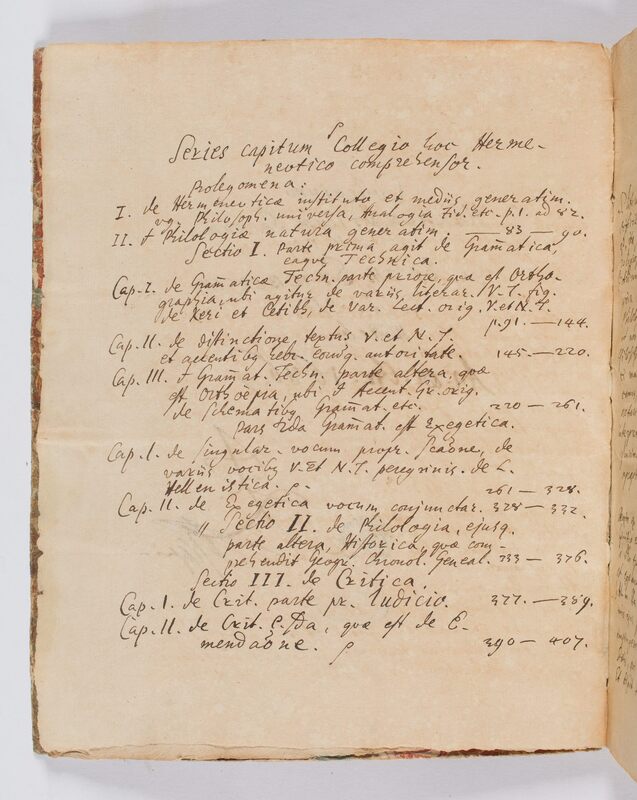 Series capitum Collegio hoc Herme-
neutico comprehensor.
Prolegomena:
I. de Hermeneuticæ instituto et mediis generatim.
vg. Philosoph. universa, Analogia Fid. etc. p. 1. ad 82.
II. Philologiæ natura generatim. — 83 — 90.
Sectio I. Parte prima agit de Gram̄atica,
eaqve Technica.
Cap. I. de Gram̄aticæ Techn. parte priore, quæ est Ortho-
graphia, ubi agitur de variis literar. V. T. fig.
de Keri et Cetibh, de Var. Lect. orig. V. et N. T.
p. 91. — 144.
Cap. II. de distinctione, textus V. et N. T.
et accentibq hebr. eorūq. autoritate. 145 — 220.
Cap. III. Gram̄at. Techn. parte altera, quæ
est Orthoëpia, ubi Accent. Gr. orig.
de Schematibq Gram̄at. etc. 220 — 261.
Pars IIda Gram̄at. est Exegetica.
Cap. I. de singular. vocum propr. de
variis vocibq V. Et N. T. peregrinis. de L.
Hellenistica. 261 — 328.
Cap. II. de Exegetica vocum conjunctar. 328 — 332.
" Sectio II. de Philologia, ejusq.
parte altera, Historica, quæ com-
prehendit Geogr. Chronol. Geneal. 333 — 376.
Sectio III. de Critica.
Cap. I. de Crit. parte pr. Iudicio. 377. — 389.
Cap. II. de Crit. P. IIda, quæ est de E-
mendaōne. 390 — 407.